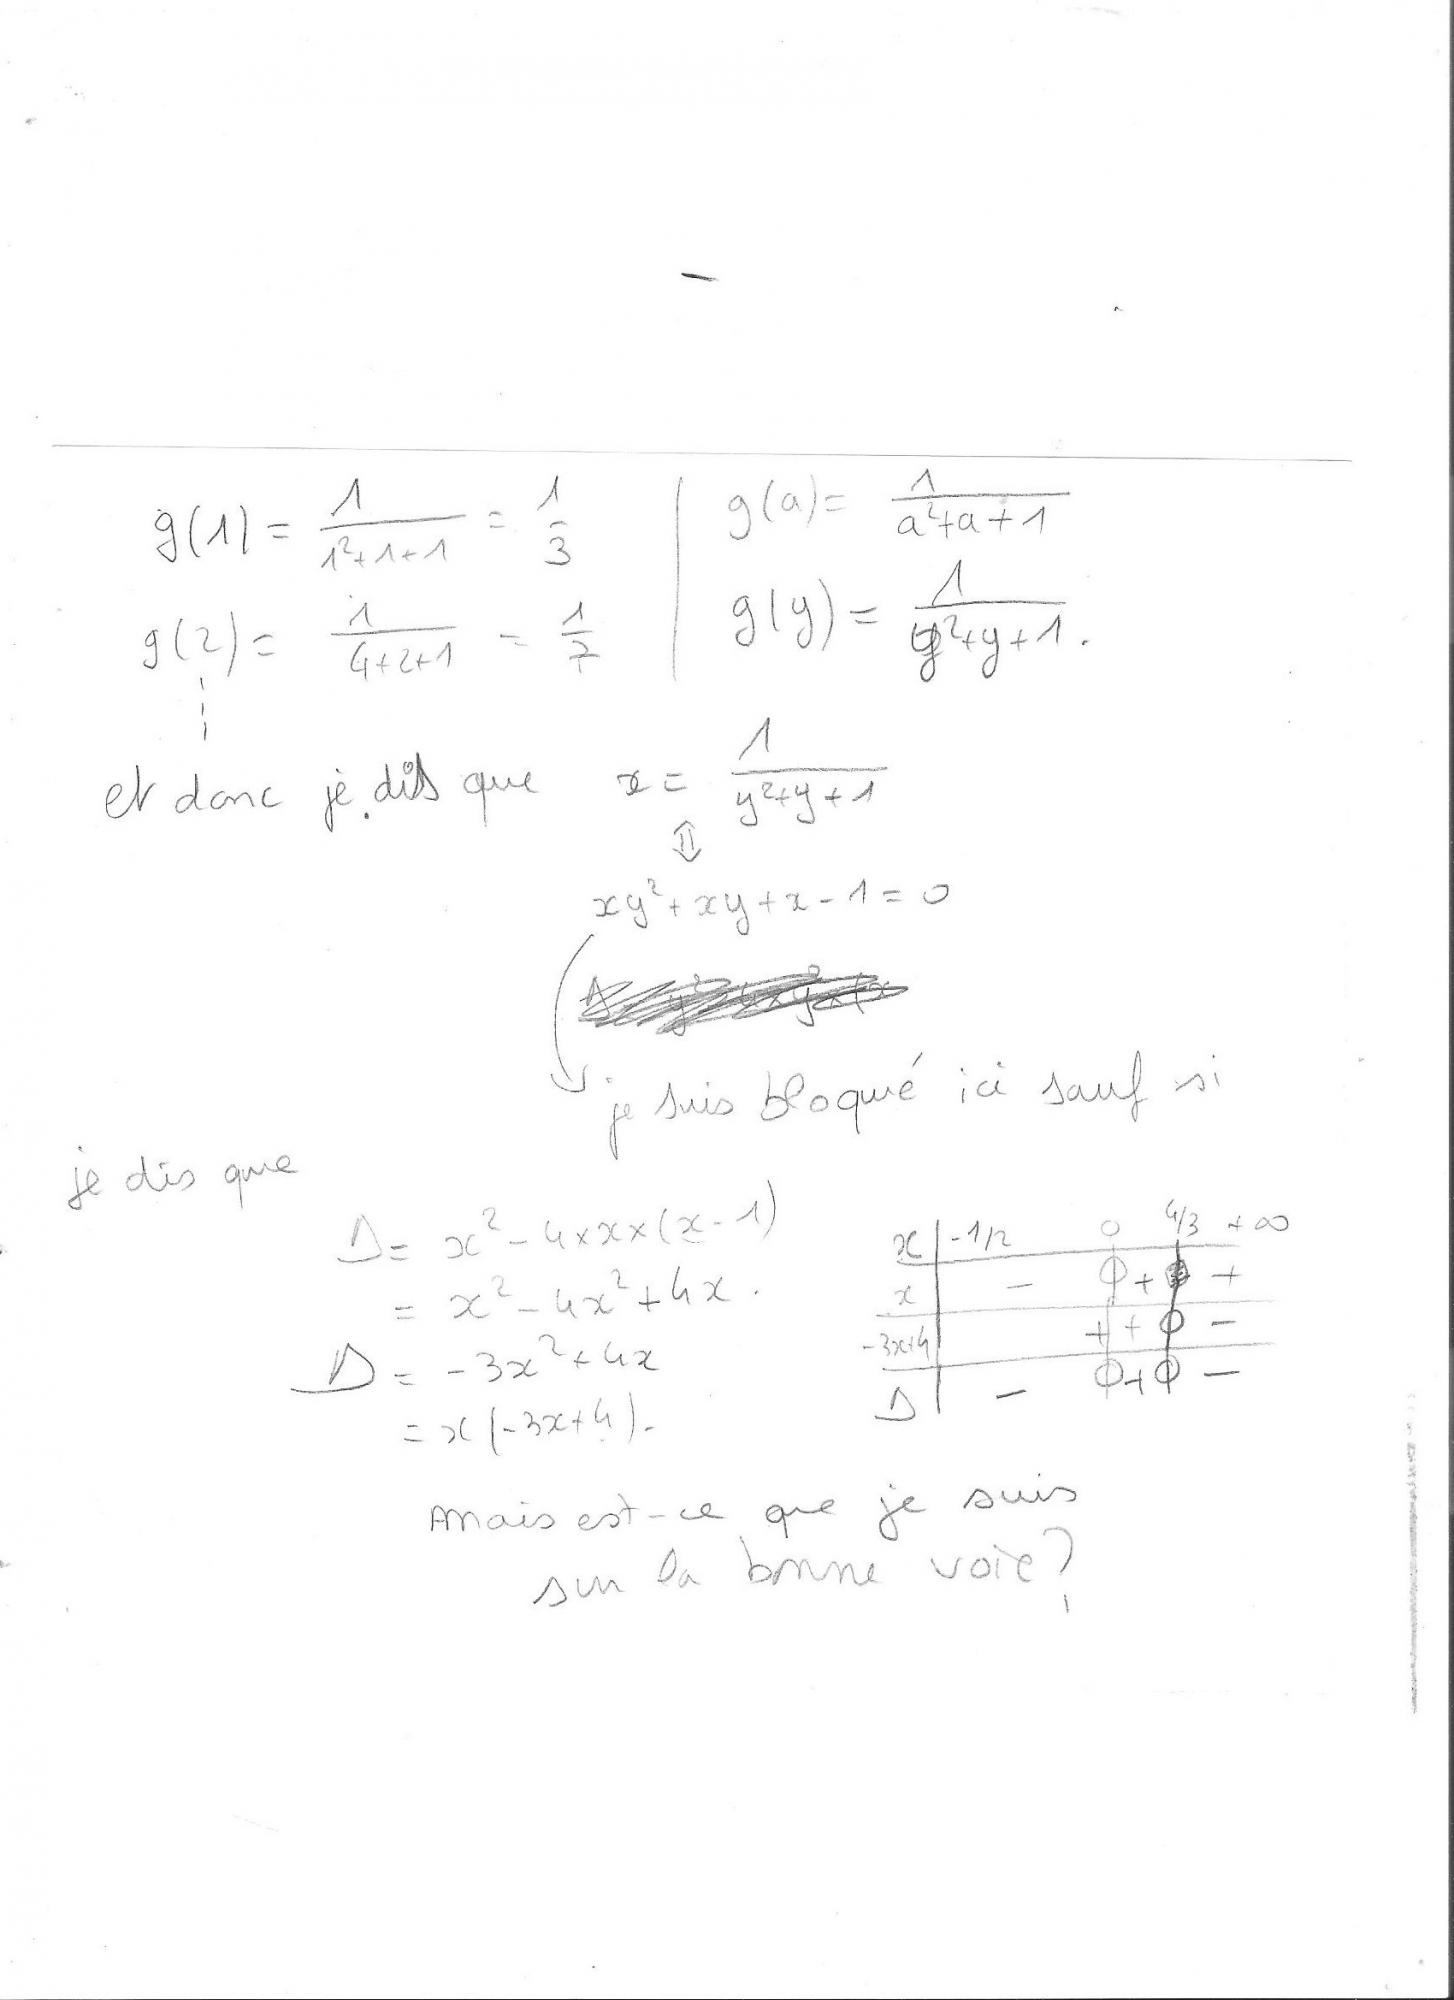 g(1) = 1/(1²+1+1) = 1/3
g(2) = 1/(4+2+1) = 1/7
g(a) = 1/(a²+a+1)
g(y) = 1/(y²+y+1).
et donc je dis que x = 1/(y²+y+1)
⇕
xy²+xy+x-1=0
je suis bloqué ici sauf si
je dis que
Δ = x²-4×x×(x-1)
= x²-4x²+4x.
Δ = -3x²+4x
= x(-3x+4).
x | -1/2 0 4/3 +∞
x | - 0 + +
-3x+4 | + + 0 -
Δ | - 0 + 0 -
Mais est-ce que je suis
sur la bonne voie?